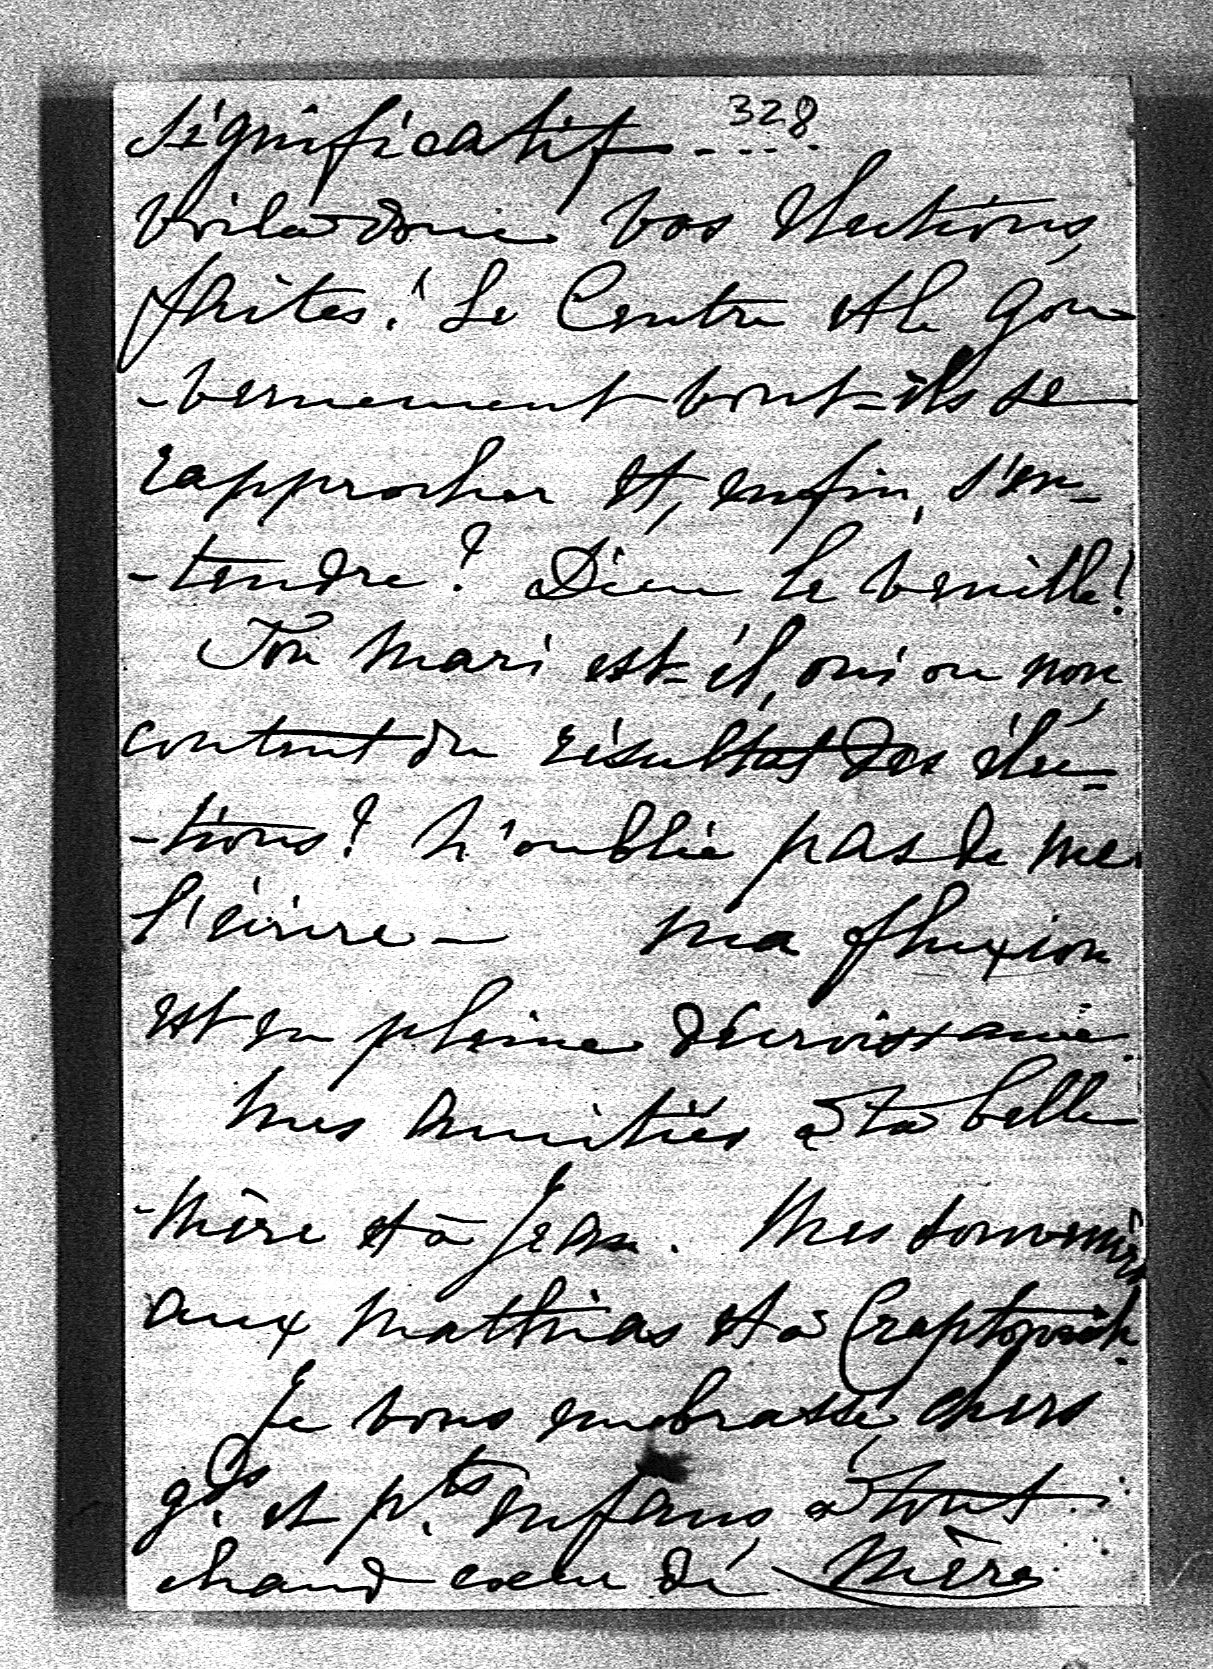 328
significatif - - - -
Voilà donc vos élections
faites! Le Centre et le Gou-
-vernement vont-ils se
rapprocher et, enfin, s'en-
-tendre? Dieu le veuille!
Ton mari est-il, oui ou non,
content du résultat des élec-
-tions? N'oublie pas de me
l'écrire - Ma fluxion
est en pleine décroissance.
Mes amitiés à ta belle
-mère et à Jean. Mes souvenirs
aux Mathias et à
Je vous embrasse, chers
gds. et pts. enfans, à tout
chaud cœur de Mère